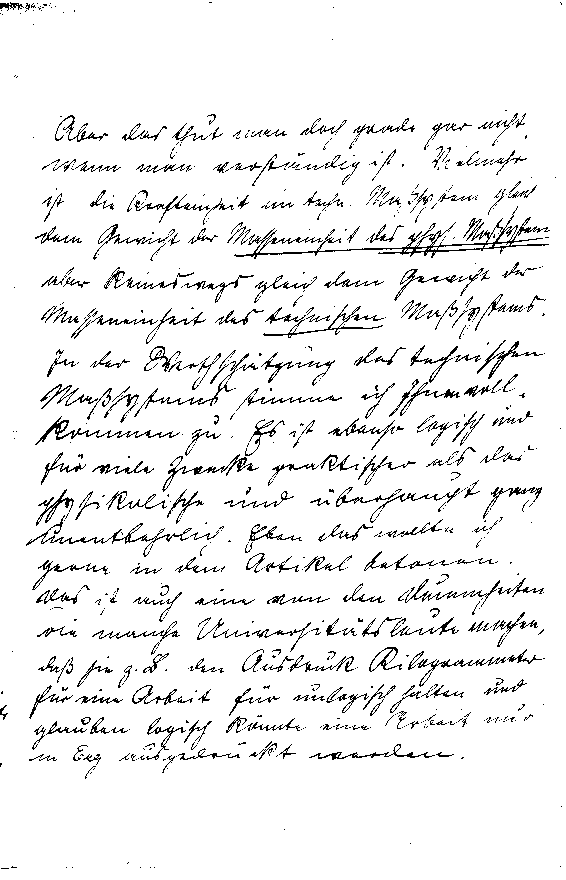 Aber das thut man doch grade gar nicht,
wenn man verständig ist. Vielmehr
ist die Krafteinheit im techn. Maßsystem gleich
dem Gewicht der Masseneinheit des phys. Maßsystems
aber keineswegs gleich dem Gewicht der
Masseneinheit des technischen Maßsystems.
In der Werthschätzung des technischen
Maßsystems stimme ich Ihnen voll-
kommen zu. Es ist ebenso logisch und
für viele Zwecke praktischer als das
physikalische und überhaupt ganz
unentbehrlich. Eben das wollte ich
gerne in dem Artikel betonen.
Das ist auch eine von den Dummheiten
die manche Universitätsleute machen,
daß sie z. B. den Ausdruck Kilogrammeter
für eine Arbeit für unlogisch halten und
glauben logisch könnte eine Arbeit nur
in Erg ausgedrückt werden.